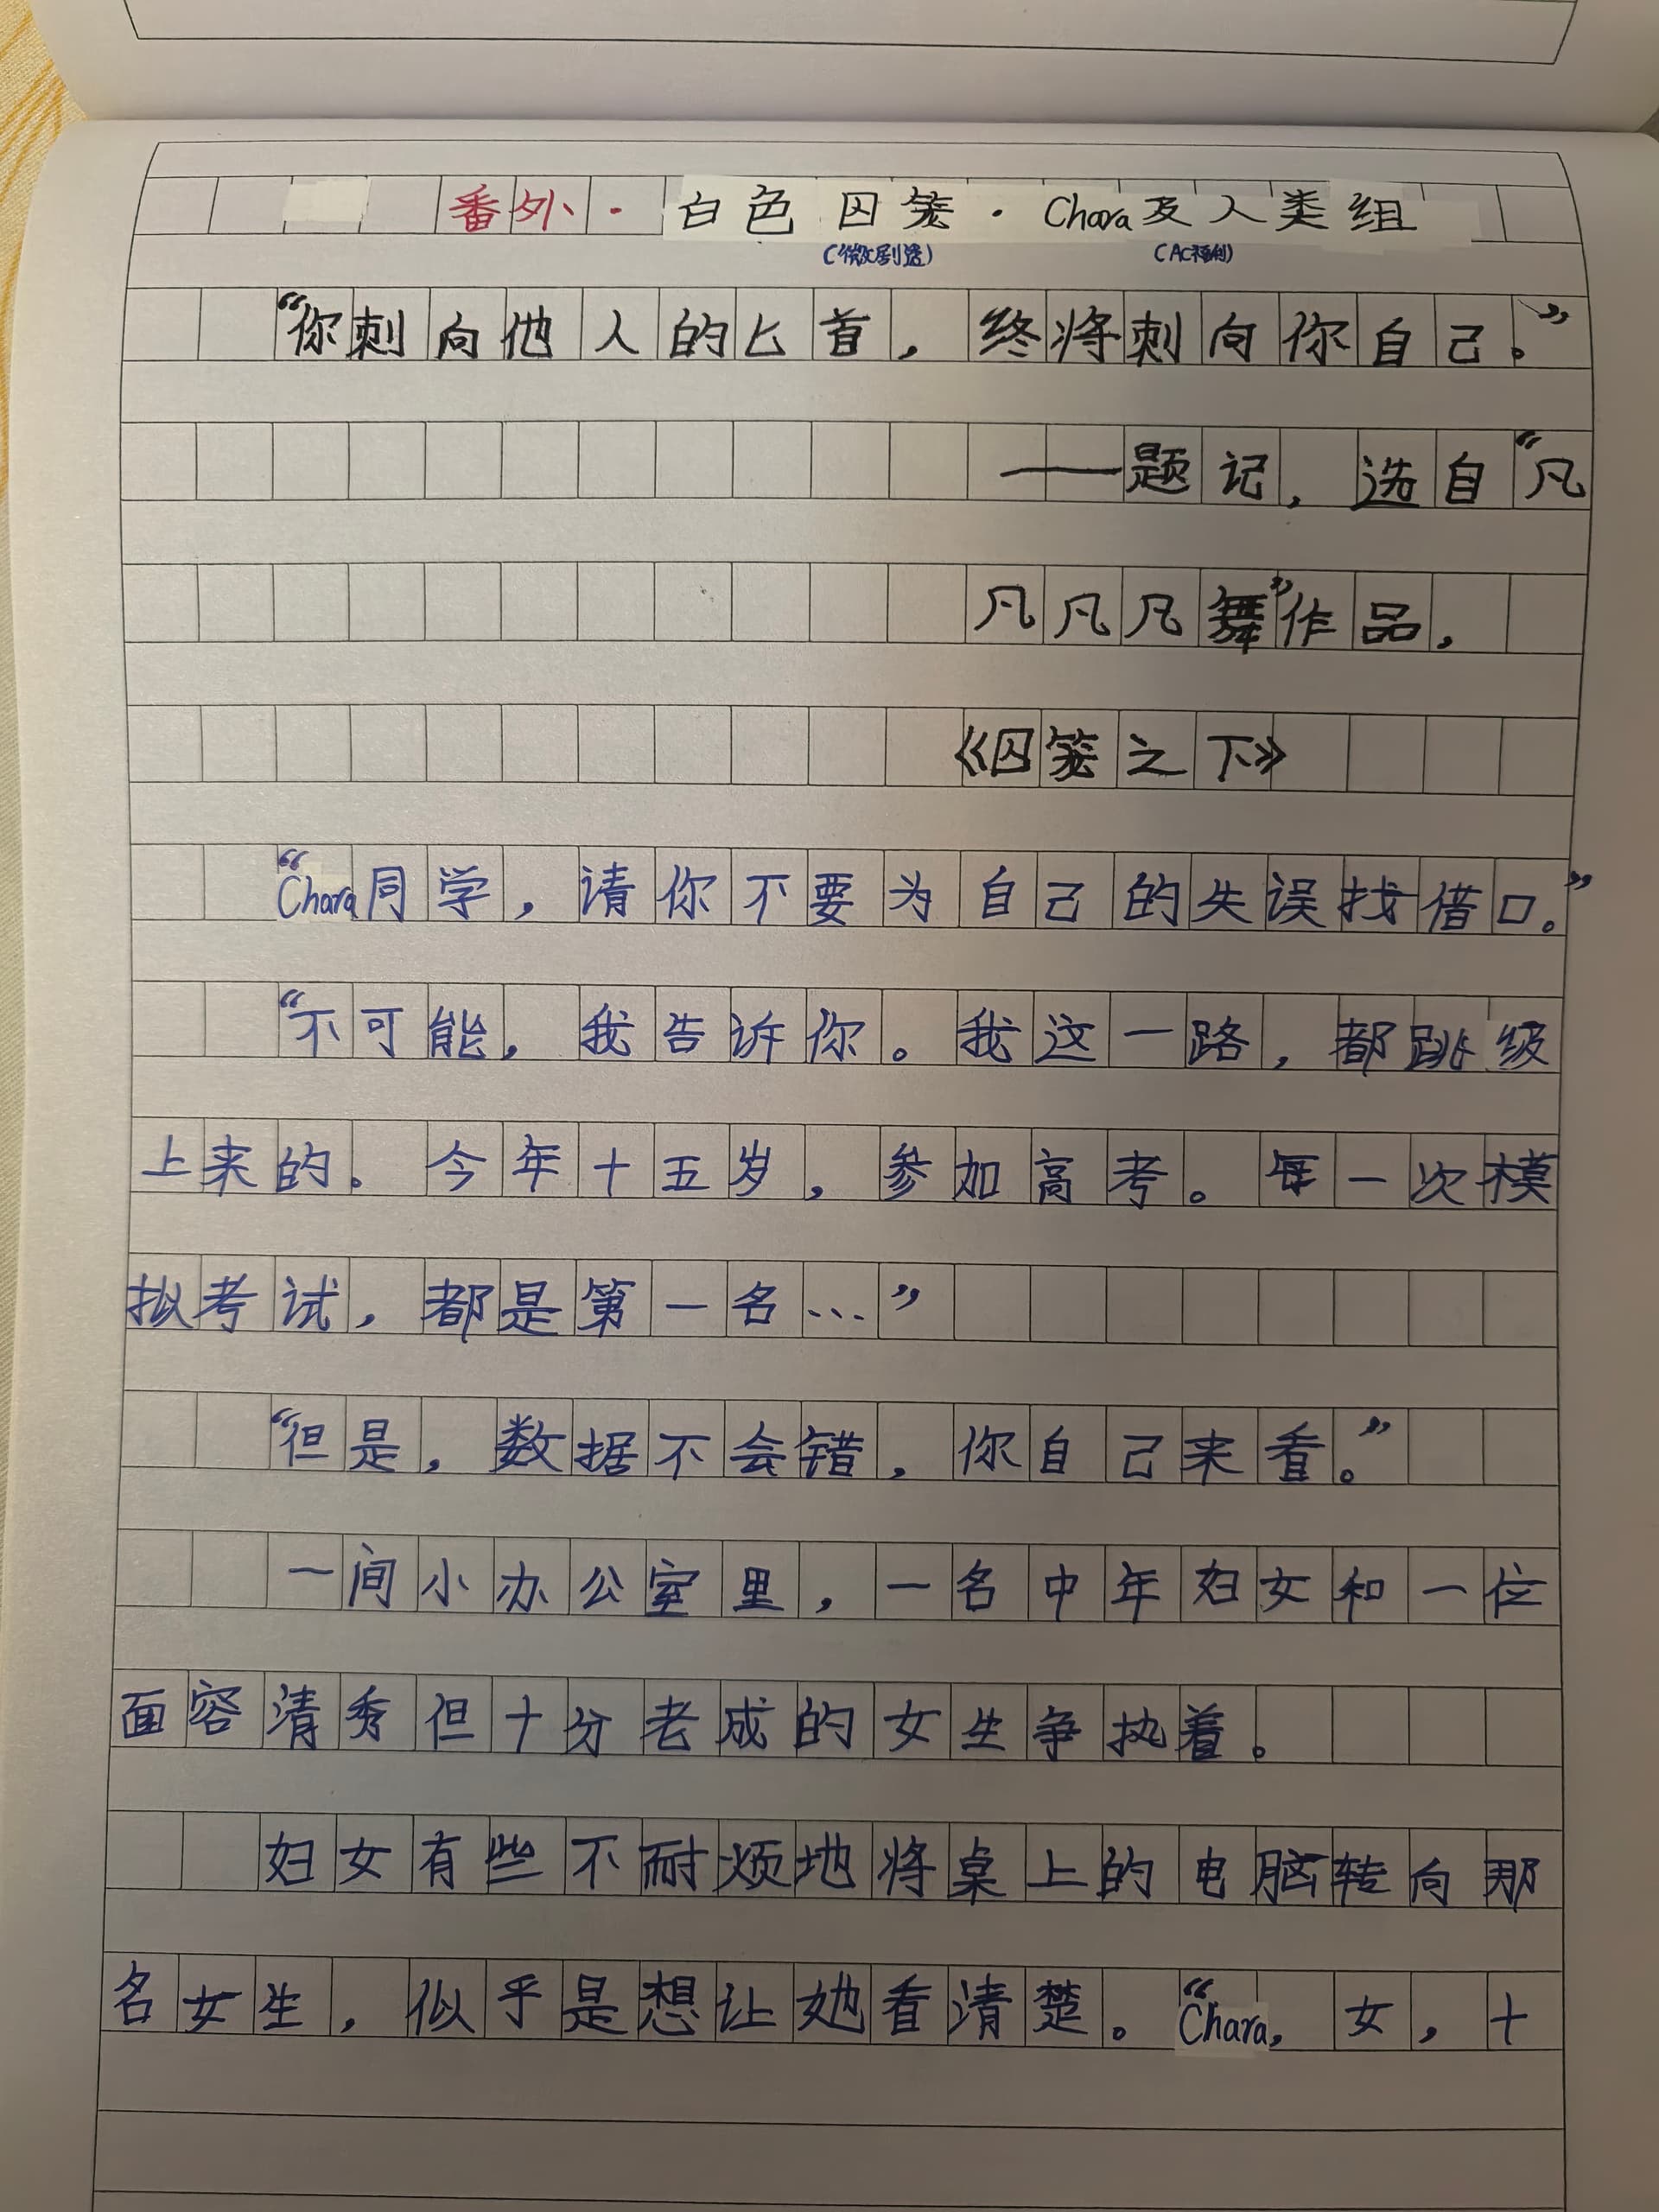 番外·白色囚笼·Chara及人类组
（微剧透）（AC福利）
“你刺向他人的匕首，终将刺向你自己。”
——题记，选自“凡
凡凡凡舞”作品，
《囚笼之下》
“Chara同学，请你不要为自己的失误找借口。”
“不可能，我告诉你。我这一路，都跳级
上来的。今年十五岁，参加高考。每一次模
拟考试，都是第一名…”
“但是，数据不会错，你自己来看。”
一间小办公室里，一名中年妇女和一位
面容清秀但十分老成的女生争执着。
妇女有些不耐烦地将桌上的电脑转向那
名女生，似乎是想让她看清楚。“Chara，女，十